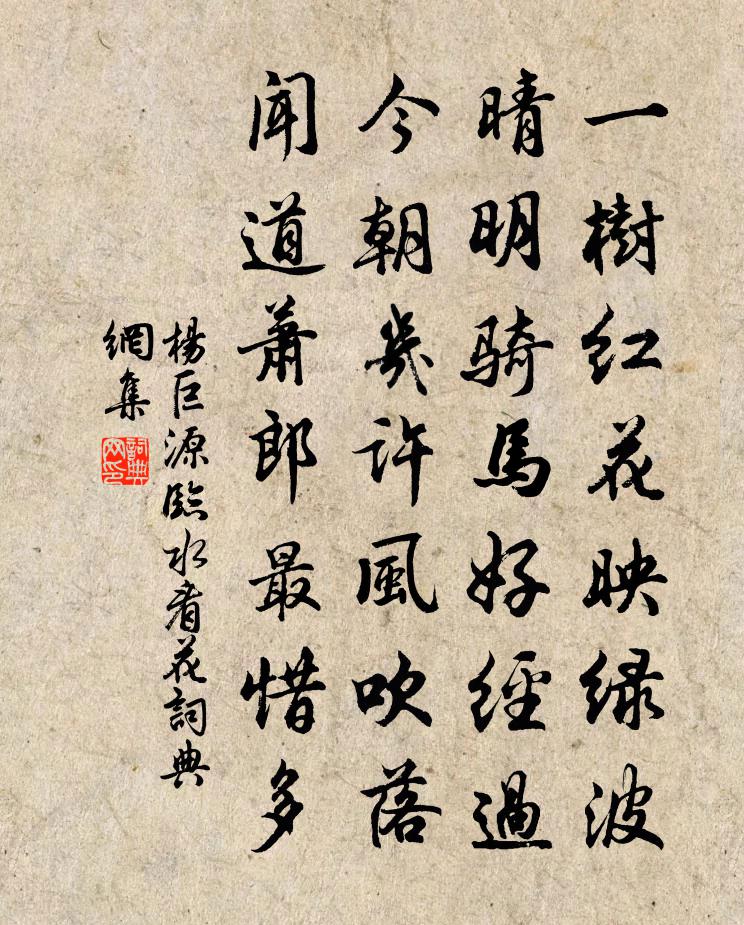 一樹紅花映绿波
晴明騎馬好經過
今朝幾許風吹落
聞道蕭郎最惜多
楊巨源臨水看花詞典
網集
詞典
网印